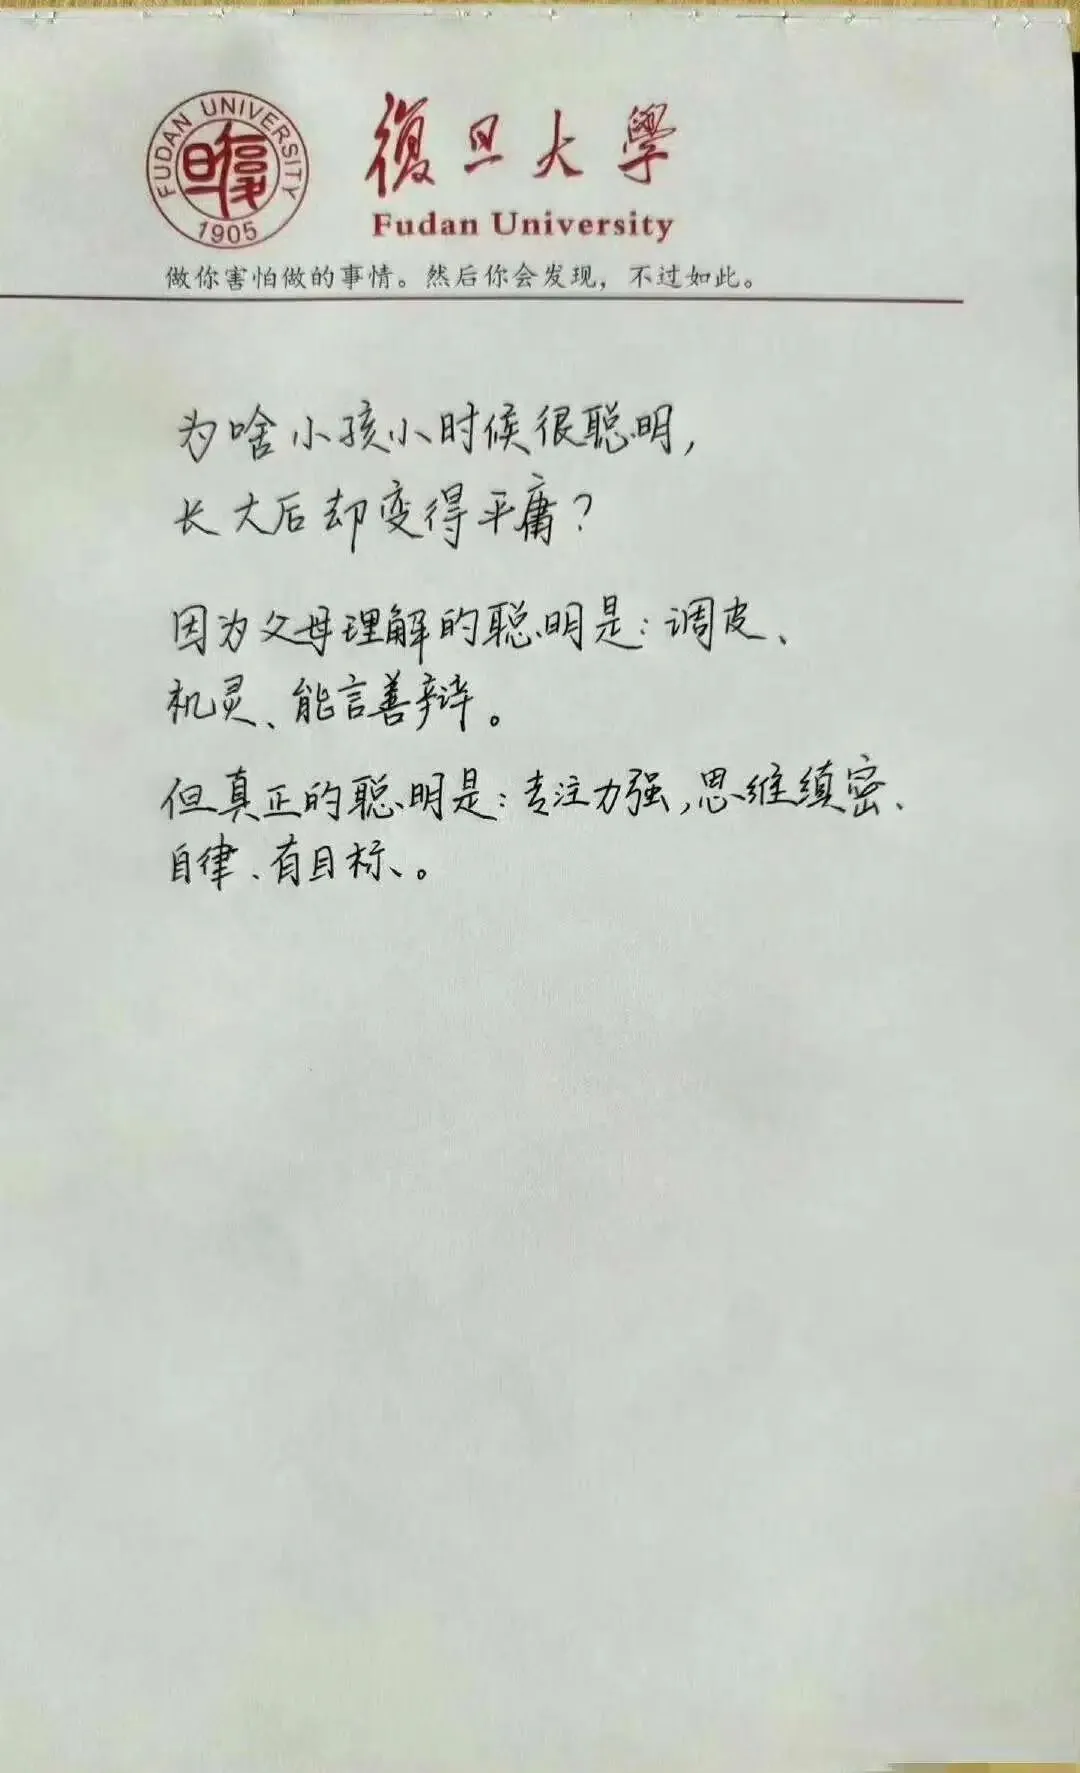 FUDAN UNIVERSITY
1905
復旦大學
Fudan University
做你害怕做的事情。然后你会发现，不过如此。
为啥小孩小时候很聪明，
长大后却变得平庸？
因为父母理解的聪明是：调皮、
机灵、能言善辩。
但真正的聪明是：专注力强，思维缜密、
自律、有目标、。